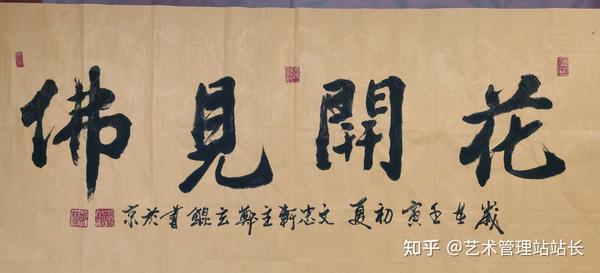 花開見佛
歲在壬寅初夏 文忠軒主鄭玄鯤書於京
知乎 @艺术管理站站长